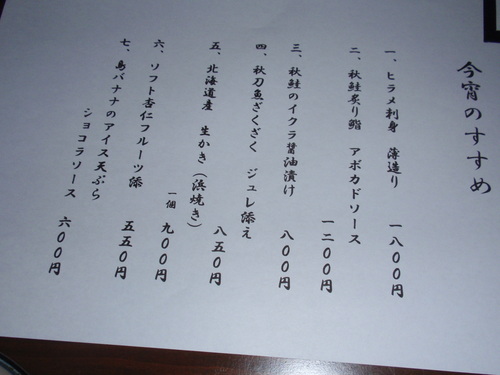 今宵のすすめ
一、ヒラメ刺身 薄造り 一八〇〇円
二、秋鮭炙り鮨 アボカドソース
一二〇〇円
三、秋鮭のイクラ醤油漬け 八〇〇円
四、秋刀魚ざくざく ジュレ添え
八五〇円
五、北海道産 生かき(浜焼き)
一個 九〇〇円
六、ソフト杏仁フルーツ添 五五〇円
七、島バナナのアイス天ぷら
ショコラソース 六〇〇円